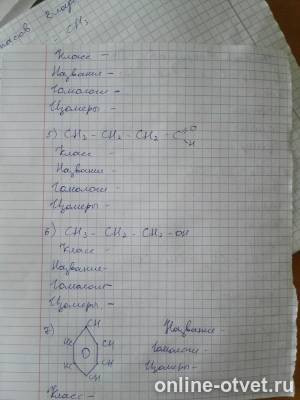 CH3
Класс -
Название -
Гомологи -
Изомеры -
5) CH2 - CH2 - CH2 - C
O
H
Класс -
Название -
Гомологи -
Изомеры -
6) CH3 - CH2 - CH2 - OH
Класс -
Название -
Гомологи -
Изомеры -
7) CH
HC CH
HC CH
CH
Название -
Гомологи -
Изомеры -
Класс -
online-otvet.ru